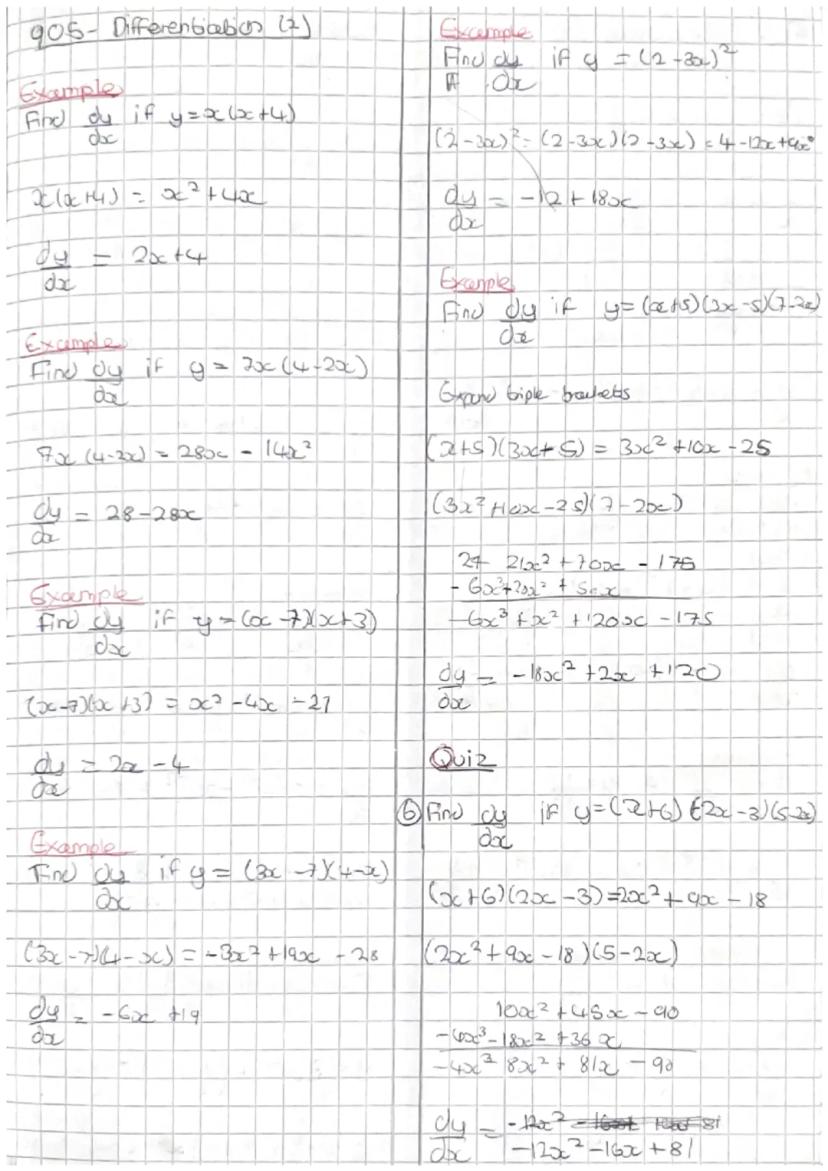 905 - Differentiation (2)
Example
Find dy/dx if y = x(x+4)
x(x+4) = x² + 4x
dy/dx = 2x + 4
Example
Find dy/dx if y = 7x(4-2x)
7x(4-2x) = 28x - 14x²
dy/dx = 28 - 28x
Example
Find dy/dx if y = (x-7)(x+3)
(x-7)(x+3) = x² - 4x - 21
dy/dx = 2x - 4
Example
Find dy/dx if y = (3x-7)(4-x)
(3x-7)(4-x) = -3x² + 19x - 28
dy/dx = -6x + 19
Example
Find dy/dx if y = (2-3x)²
(2-3x)² = (2-3x)(2-3x) = 4 - 12x + 9x²
dy/dx = -12 + 18x
Example
Find dy/dx if y = (x+5)(3x-5)(7-2x)
Expand triple brackets
(x+5)(3x+5) = 3x² + 10x - 25
(3x² + 10x - 25)(7-2x)
21x² + 70x - 175
-6x³ + 20x² + 50x
-6x³ + x² + 120x - 175
dy/dx = -18x² + 2x + 120
Quiz
6 Find dy/dx if y = (x+6)(2x-3)(5-2x)
(x+6)(2x-3) = 2x² + 9x - 18
(2x² + 9x - 18)(5-2x)
10x² + 45x - 90
-4x³ - 18x² + 36x
-4x³ 8x² + 81x - 90
dy/dx = -12x²
-12x² - 16x + 81